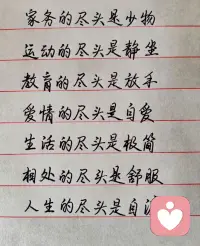 家务的尽头是少物
运动的尽头是静坐
教育的尽头是放手
爱情的尽头是自爱
生活的尽头是极简
相处的尽头是舒服
人生的尽头是自